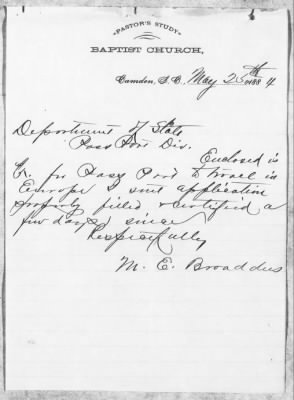 PASTOR'S STUDY
BAPTIST CHURCH,
Camden, S. C., May 25th 1884
Department of State
Pass Port Div.
Enclosed is
for Pass Port to travel in
Europe I sent application
properly filled & certified a
few days since
Respectfully
M. E. Broaddus